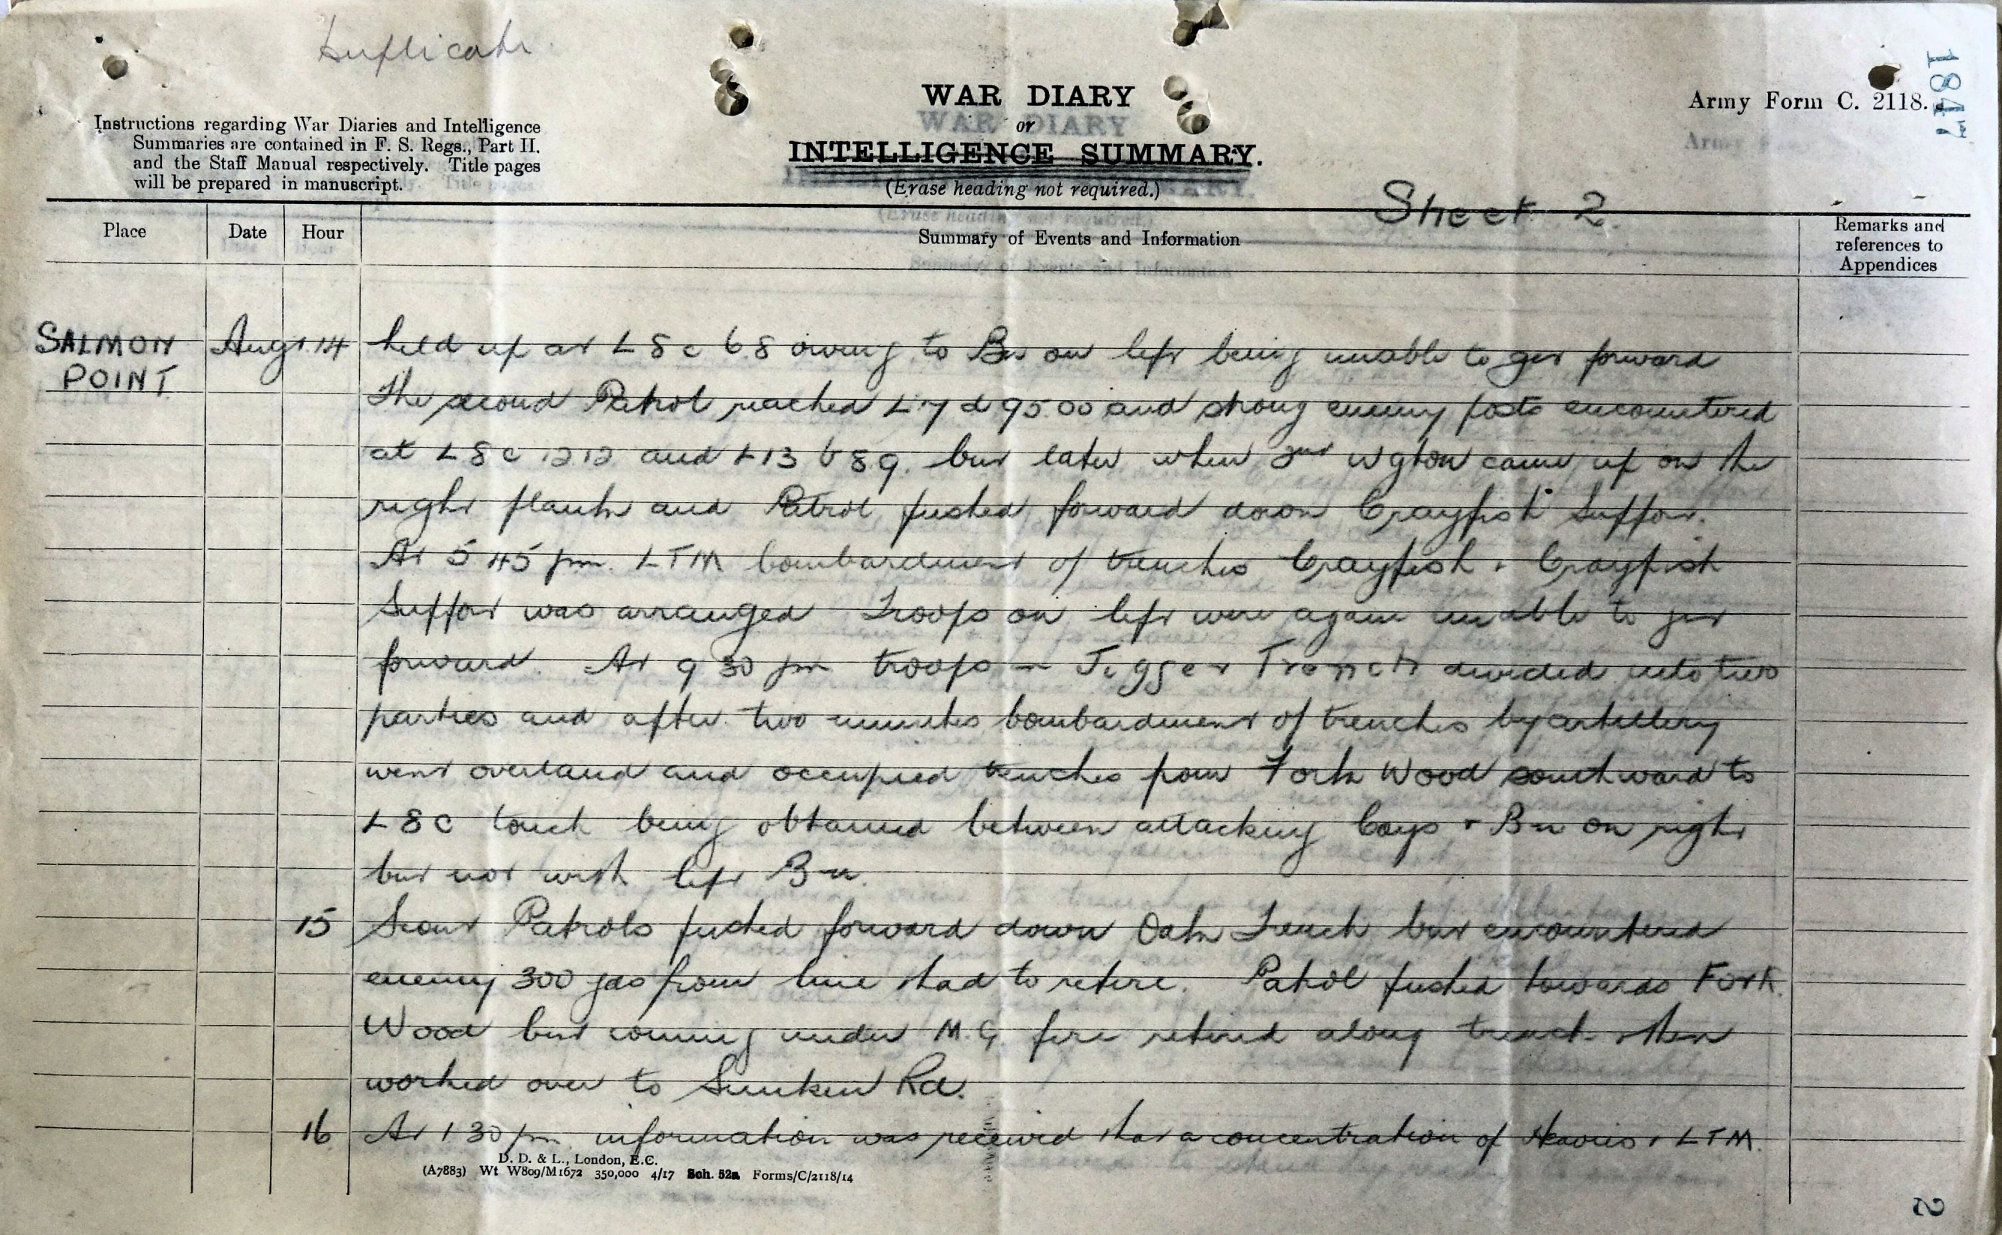 Duplicate.
1847
WAR DIARY
or
INTELLIGENCE SUMMARY.
(Erase heading not required.)
Army Form C. 2118.
Instructions regarding War Diaries and Intelligence
Summaries are contained in F. S. Regs., Part II.
and the Staff Manual respectively. Title pages
will be prepared in manuscript.
Sheet 2.
Place Date Hour Summary of Events and Information Remarks and references to Appendices
SALMON POINT Augt 14 held up at L 8 c 6 8 owing to Bn on left being unable to get forward
The second Patrol reached L 7 d 95.00 and strong enemy posts encountered
at L 8 c 12 12 and L 13 b 8 9. but later when 2nd Wgton came up on the
right flank and Patrol pushed forward down Crayfish Support.
At 5 45 pm. LTM bombardment of trenches Crayfish & Crayfish
Support was arranged Troops on left were again unable to get
forward. At 9 30 pm troops in Jigger Trench divided into two
parties and after two minutes bombardment of trenches by artillery
went overland and occupied trenches from Fork Wood southward to
L 8 c touch being obtained between attacking Coys & Bn on right
but not with left Bn.
15 Scout Patrols pushed forward down Oak Trench but encountered
enemy 300 yds from line & had to retire. Patrol pushed towards Fork
Wood but coming under M.G. fire retired along trench & then
worked over to Sunken Rd.
16 At 1 30 pm. information was received that a concentration of Heavies & LTM.
D. D. & L., London, E.C.
(A7883) Wt W809/M1672 350,000 4/17 Sch. 52a Forms/C/2118/14
2